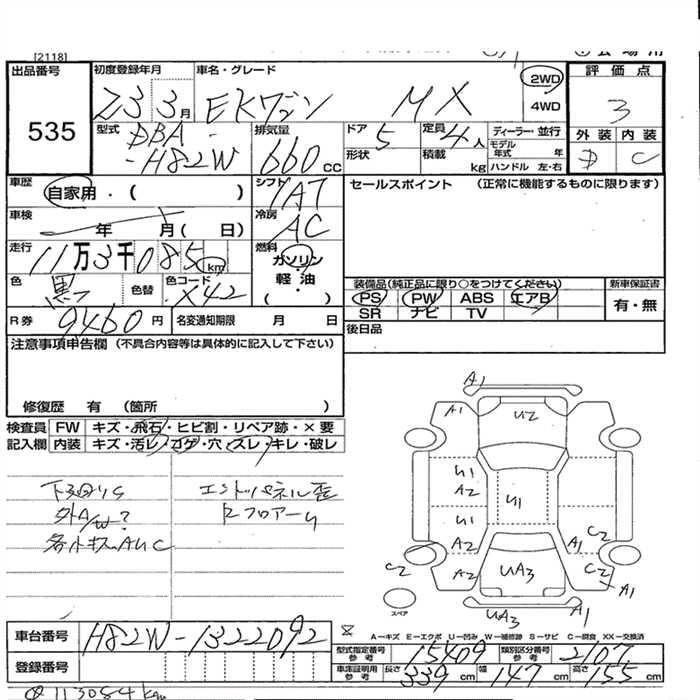 [2118]
出品番号 535
初度登録年月 23 3月
車名・グレード EKワゴン MX
2WD
4WD
評価点 3
外装 D 内装 C
型式 DBA-H82W
排気量 660 cc
ドア 5
形状
定員 4人
積載 kg
ディーラー・並行
モデル年式 年
ハンドル 左・右
車歴 自家用・( )
シフト 1AT
車検 年 月( 日)
冷房 AC
走行 11万3千085 km
燃料 ガソリン・軽油 ( )
色 黒 色替 色コード X42
R券 9460円 名変通知期限 月 日
セールスポイント (正常に機能するものに限ります)
装備品(純正品に限り○をつけてください)
PS PW ABS エアB
SR ナビ TV
新車保証書
有・無
後日品
注意事項申告欄 (不具合内容等は具体的に記入して下さい)
修復歴 有 (箇所 )
検査員 FW キズ・飛石・ヒビ割・リペア跡・×要
記入欄 内装 キズ・汚レ・コゲ・穴・スレ・キレ・破レ
下回りS
エンドパネル歪
外A/W?
RフロアーU
各所キズAUC
A1
A1
U2
U1
A2
U1
U1
A2
A2
C2
UA3
C2
A1
C2
A1
UA3
A1
スペア
A-キズ E-エクボ U-凹み W-補修跡 S-サビ C-腐食 XX-交換済
車台番号 H82W-1322092
登録番号
型式指定番号 参考 15409
類別区分番号 参考 2107
車庫証明用 参考 長さ 339 cm 幅 147 cm 高さ 155 cm
113084km